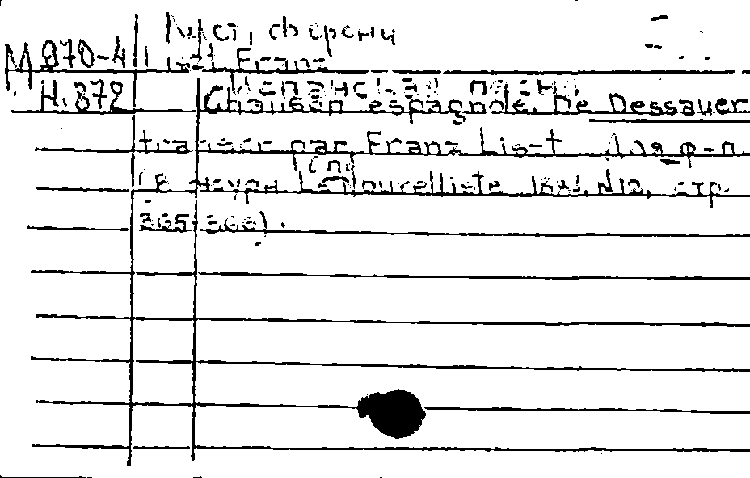 М 870-4 Лист, Ференц
Liszt Franz
Н. 872 Испанская песня
Chanson espagnole. De Dessauer
transcr par Franz Liszt Для ф-п.
(В журн Le Nouvelliste, №12, стр.
365-366).